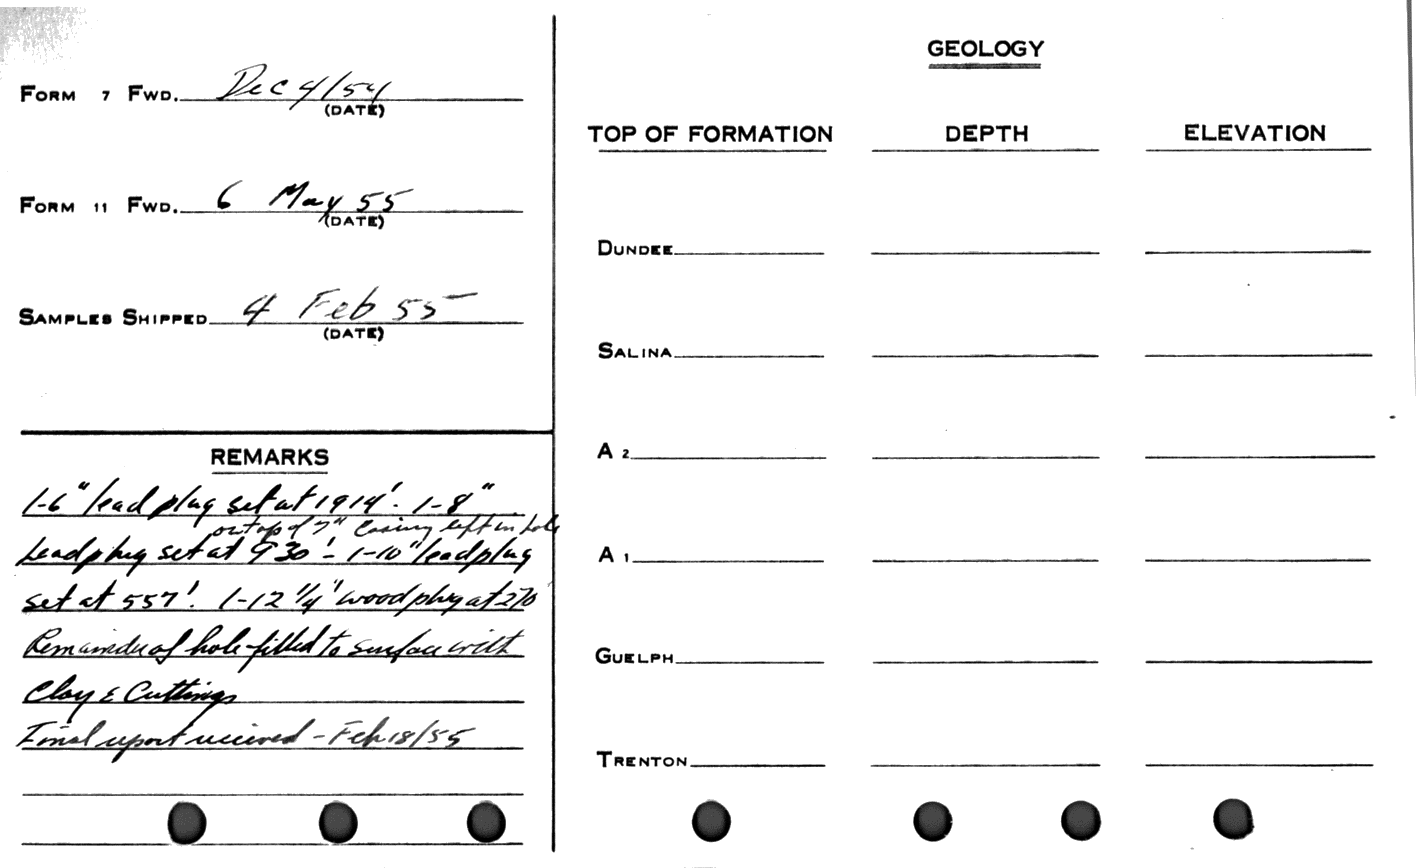 FORM 7 FWD. Dec 4/54
(DATE)
FORM 11 FWD. 6 May 55
(DATE)
SAMPLES SHIPPED 4 Feb 55
(DATE)
REMARKS
1-6" lead plug set at 1914'. 1-8"
on top of 7" Casing left in hole
Lead plug set at 930' - 1-10" lead plug
set at 557'. 1-12 1/4" wood plug at 270'
Remainder of hole filled to surface with
Clay & Cuttings
Final report received - Feb 18/55
GEOLOGY
TOP OF FORMATION DEPTH ELEVATION
DUNDEE
SALINA
A 2
A 1
GUELPH
TRENTON